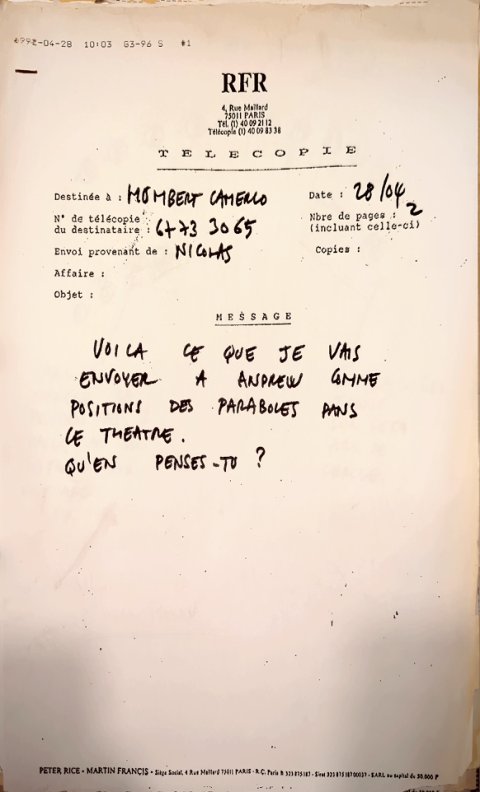 1992-04-28 10:03 G3-96 S #1
RFR
4, Rue Maillard
75011 PARIS
Tél. (1) 40 09 21 12
Télécopie (1) 40 09 83 38
TELECOPIE
Destinée à : HUMBERT CAMERLO Date : 28/04
N° de télécopie du destinataire : 6773 3065 Nbre de pages : 2 (incluant celle-ci)
Envoi provenant de : NICOLAS Copies :
Affaire :
Objet :
MESSAGE
VOILA CE QUE JE VAIS
ENVOYER A ANDREW COMME
POSITIONS DES PARABOLES DANS
CE THEATRE.
QU'EN PENSES-TU ?
PETER RICE • MARTIN FRANCIS • Siège Social, 4 Rue Maillard 75011 Paris - R.C. Paris B 323 875 187 - Siret 323 875 187 00037 - SARL au capital de 50.000 F